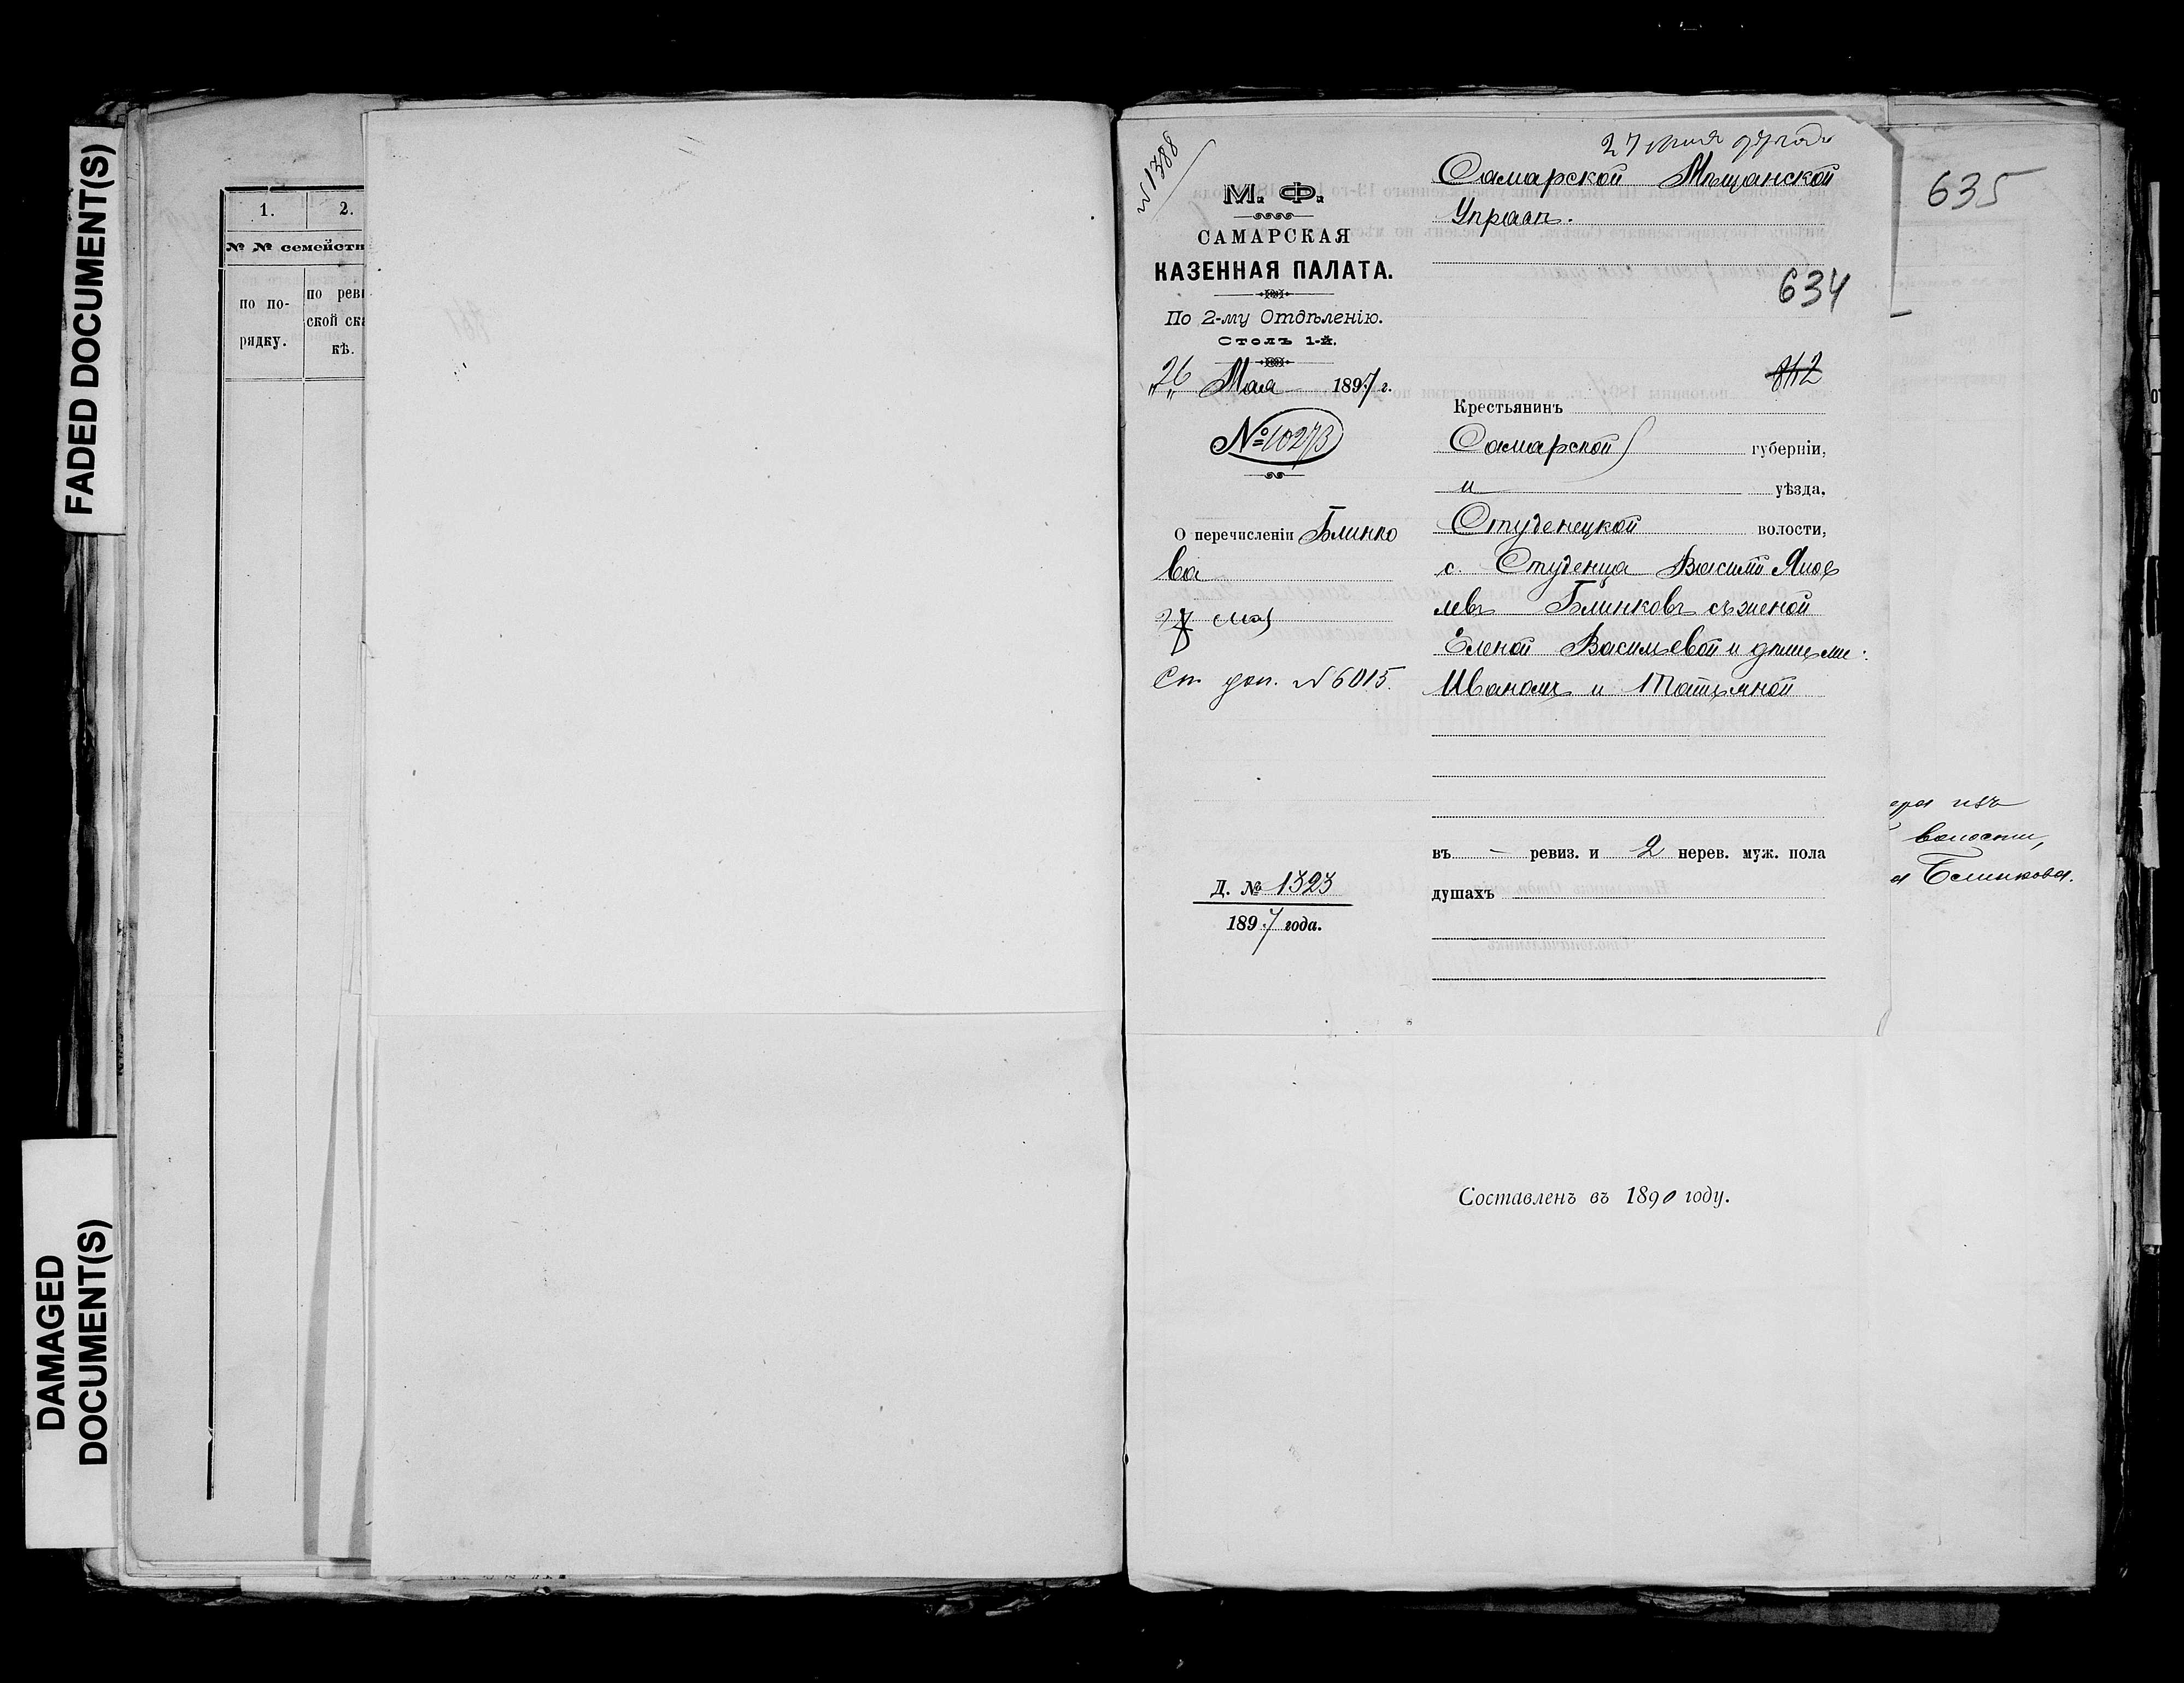 FADED DOCUMENT(S)
DAMAGED
DOCUMENT(S)
1. 2.
№ № семейств
по по-
рядку.
по реви
ской ска
кѣ.
№ 1388
М. Ф.
САМАРСКАЯ
КАЗЕННАЯ ПАЛАТА.
По 2-му Отдѣленію.
Столъ 1-й.
"26" Мая 1897 г.
№ 10273
О перечисленіи Блинко
ва
Сп. доп. № 6015.
Д. № 1323
1897 года.
27 97 года
Самарской Мѣщанской
Управѣ.
634
842
Крестьянинъ
Самарской губерніи,
и уѣзда,
Студенецкой волости,
с. Студенца Василій Яков
левъ Блинковъ съ женой
Еленой Васильевой и дѣтьми:
Иваномъ и Татьяной
въ — ревиз. и 2 нерев. муж. пола
душахъ
Составленъ въ 1890 году.
635
изъ
волости,
Блинкова.